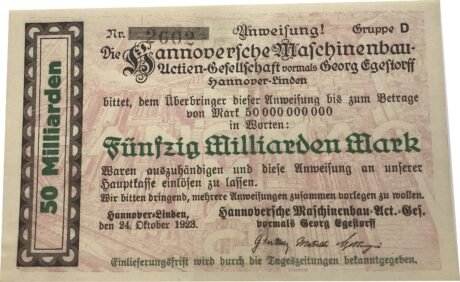 Nr. 2602 Anweisung! Gruppe D
Die Hannoversche Maschinenbau-
Actien-Gesellschaft vormals Georg Egestorff
Hannover-Linden
bittet, dem Überbringer dieser Anweisung bis zum Betrage
von Mark 50 000 000 000
in Worten:
Fünfzig Milliarden Mark
Waren auszuhändigen und diese Anweisung an unserer
Hauptkasse einlösen zu lassen.
Wir bitten dringend, mehrere Anweisungen zusammen vorlegen zu wollen.
Hannover-Linden, Hannoversche Maschinenbau-Act.-Ges.
den 24. Oktober 1923. vormals Georg Egestorff
Einlieferungsfrist wird durch die Tageszeitungen bekanntgegeben.
50 Milliarden